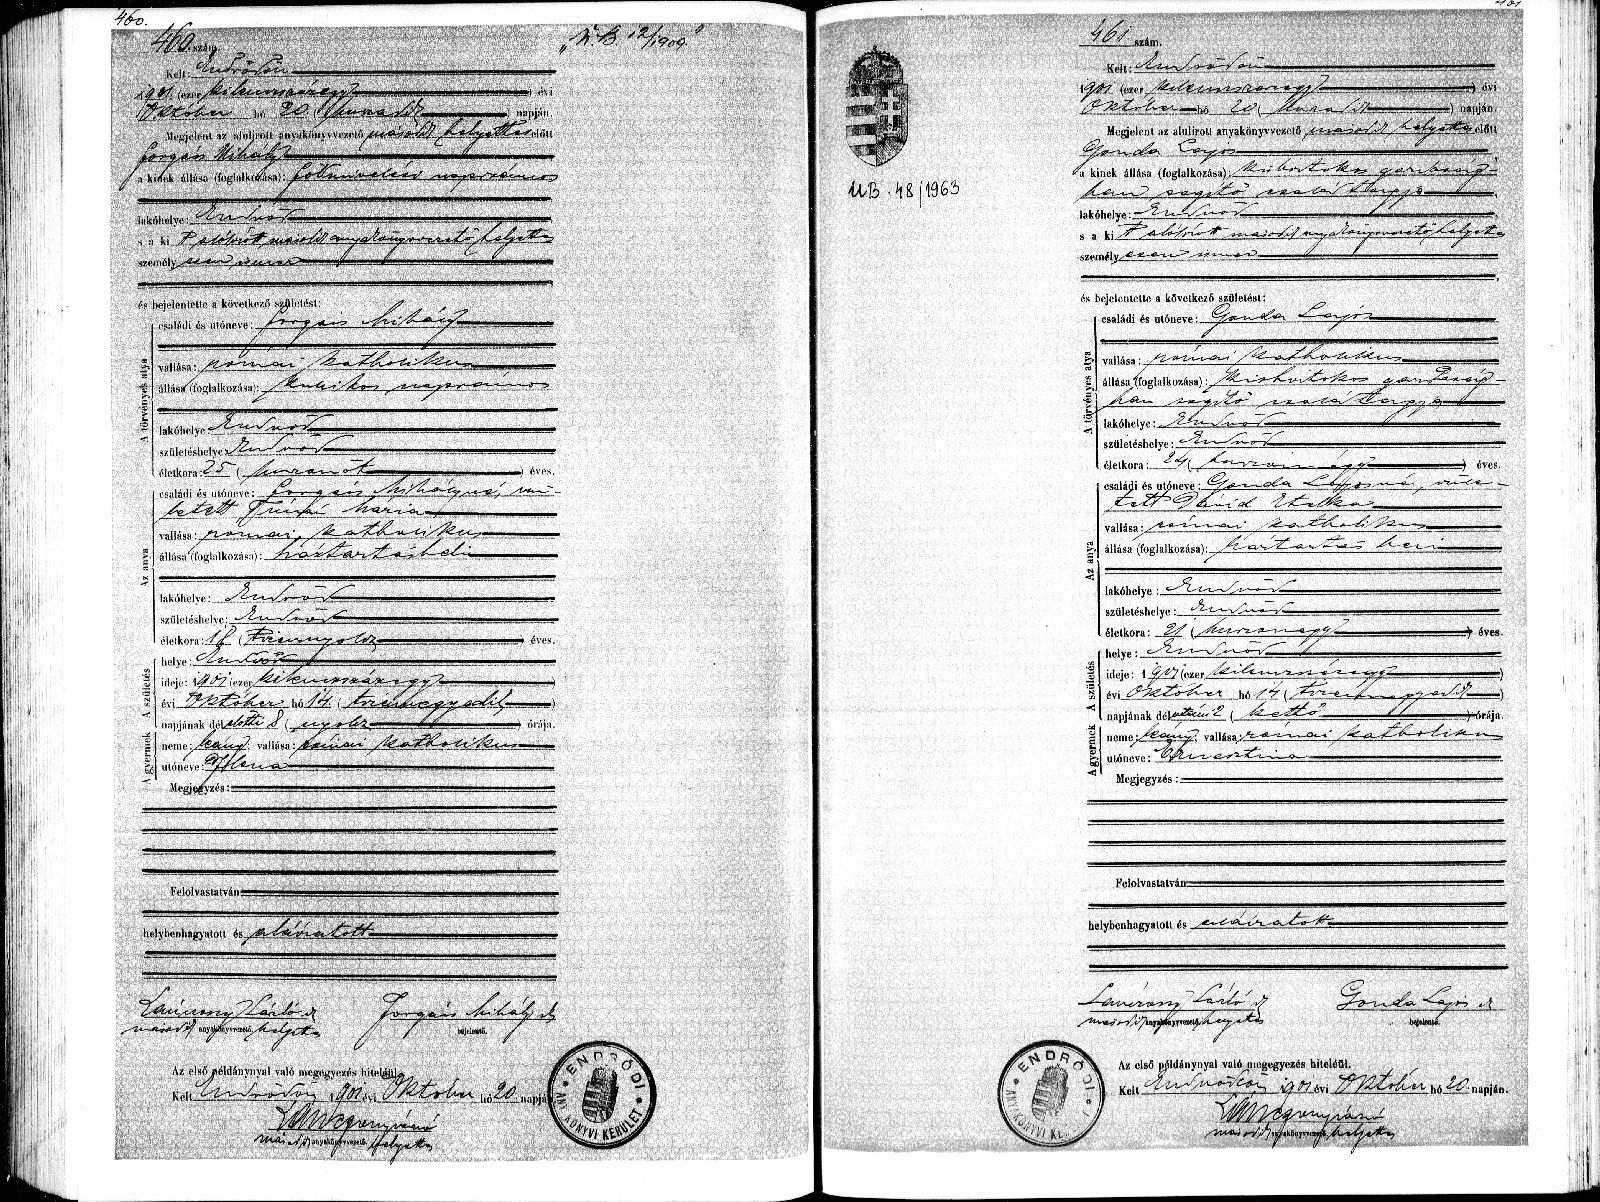 460.
460. szám.
"U.B. 12/1909."
Kelt: Endrődön
1901 (ezer kilencszázegy) évi
Október hó 20 (huszadik) napján.
Megjelent az alulirott anyakönyvvezető másodh helyettes előtt
Forgács Mihály
a kinek állása (foglalkozása): földmívelési napszámos
lakóhelye: Endrőd
s a ki t alólirott anyakönyvvezető helyettes
személyesen ismer
és bejelentette a következő születést:
A törvényes atya
családi és utóneve: Forgács Mihály
vallása: római katholikus
állása (foglalkozása): kubikos napszámos
lakóhelye: Endrőd
születéshelye: Endrőd
életkora: 25 (huszonöt) éves.
Az anya
családi és utóneve: Forgács Mihályné, szü-
letett Mária
vallása: római katholikus
állása (foglalkozása): háztartásbeli
lakóhelye: Endrőd
születéshelye: Endrőd
életkora: 18 (tizennyolcz) éves.
A születés
helye: Endrőd
ideje: 1901 (ezer kilencszázegy)
évi Október hó 14 (tizennegyedik)
napjának dél előtti 8 (nyolcz) órája.
A gyermek
neme: leány; vallása: római katholikus
utóneve: Ilona
Megjegyzés:
Felolvastatván
helybenhagyatott és aláiratott
László s
anyakönyvvezető helyettes
Forgács Mihály s
bejelentő.
Az első példánynyal való megegyezés hiteléül.
Kelt Endrődön 1901 évi Október hó 20 napján
anyakönyvvezető helyettes
ENDRŐDI ANYAKÖNYVI KERÜLET
461
461 szám.
UB. 48/1963
Kelt: Endrődön
1901 (ezer kilencszázegy) évi
Október hó 20 (huszadik) napján.
Megjelent az alulirott anyakönyvvezető helyettes előtt
Gonda Lajos
a kinek állása (foglalkozása): kisbirtokos gazdaság-
ban segítő család tagja
lakóhelye: Endrőd
s a ki t alólirott anyakönyvvezető helyettes
személyesen ismer
és bejelentette a következő születést:
A törvényes atya
családi és utóneve: Gonda Lajos
vallása: római katholikus
állása (foglalkozása): kisbirtokos gazdaság-
ban segítő család tagja
lakóhelye: Endrőd
születéshelye: Endrőd
életkora: 24 (huszonnégy) éves.
Az anya
családi és utóneve: Gonda Lajosné, szüle-
tett Dávid Etelka
vallása: római katholikus
állása (foglalkozása): háztartás beli
lakóhelye: Endrőd
születéshelye: Endrőd
életkora: 21 (huszonegy) éves.
A születés
helye: Endrőd
ideje: 1901 (ezer kilencszázegy)
évi Október hó 14 (tizennegyedik)
napjának dél utáni 2 (kettő) órája.
A gyermek
neme: leány; vallása: római katholikus
utóneve: Ernesztina
Megjegyzés:
Felolvastatván
helybenhagyatott és aláiratott
László s
anyakönyvvezető helyettes
Gonda Lajos s
bejelentő.
Az első példánynyal való megegyezés hiteléül.
Kelt Endrődön 1901 évi Október hó 20 napján.
anyakönyvvezető helyettes
ENDRŐDI ANYAKÖNYVI KE